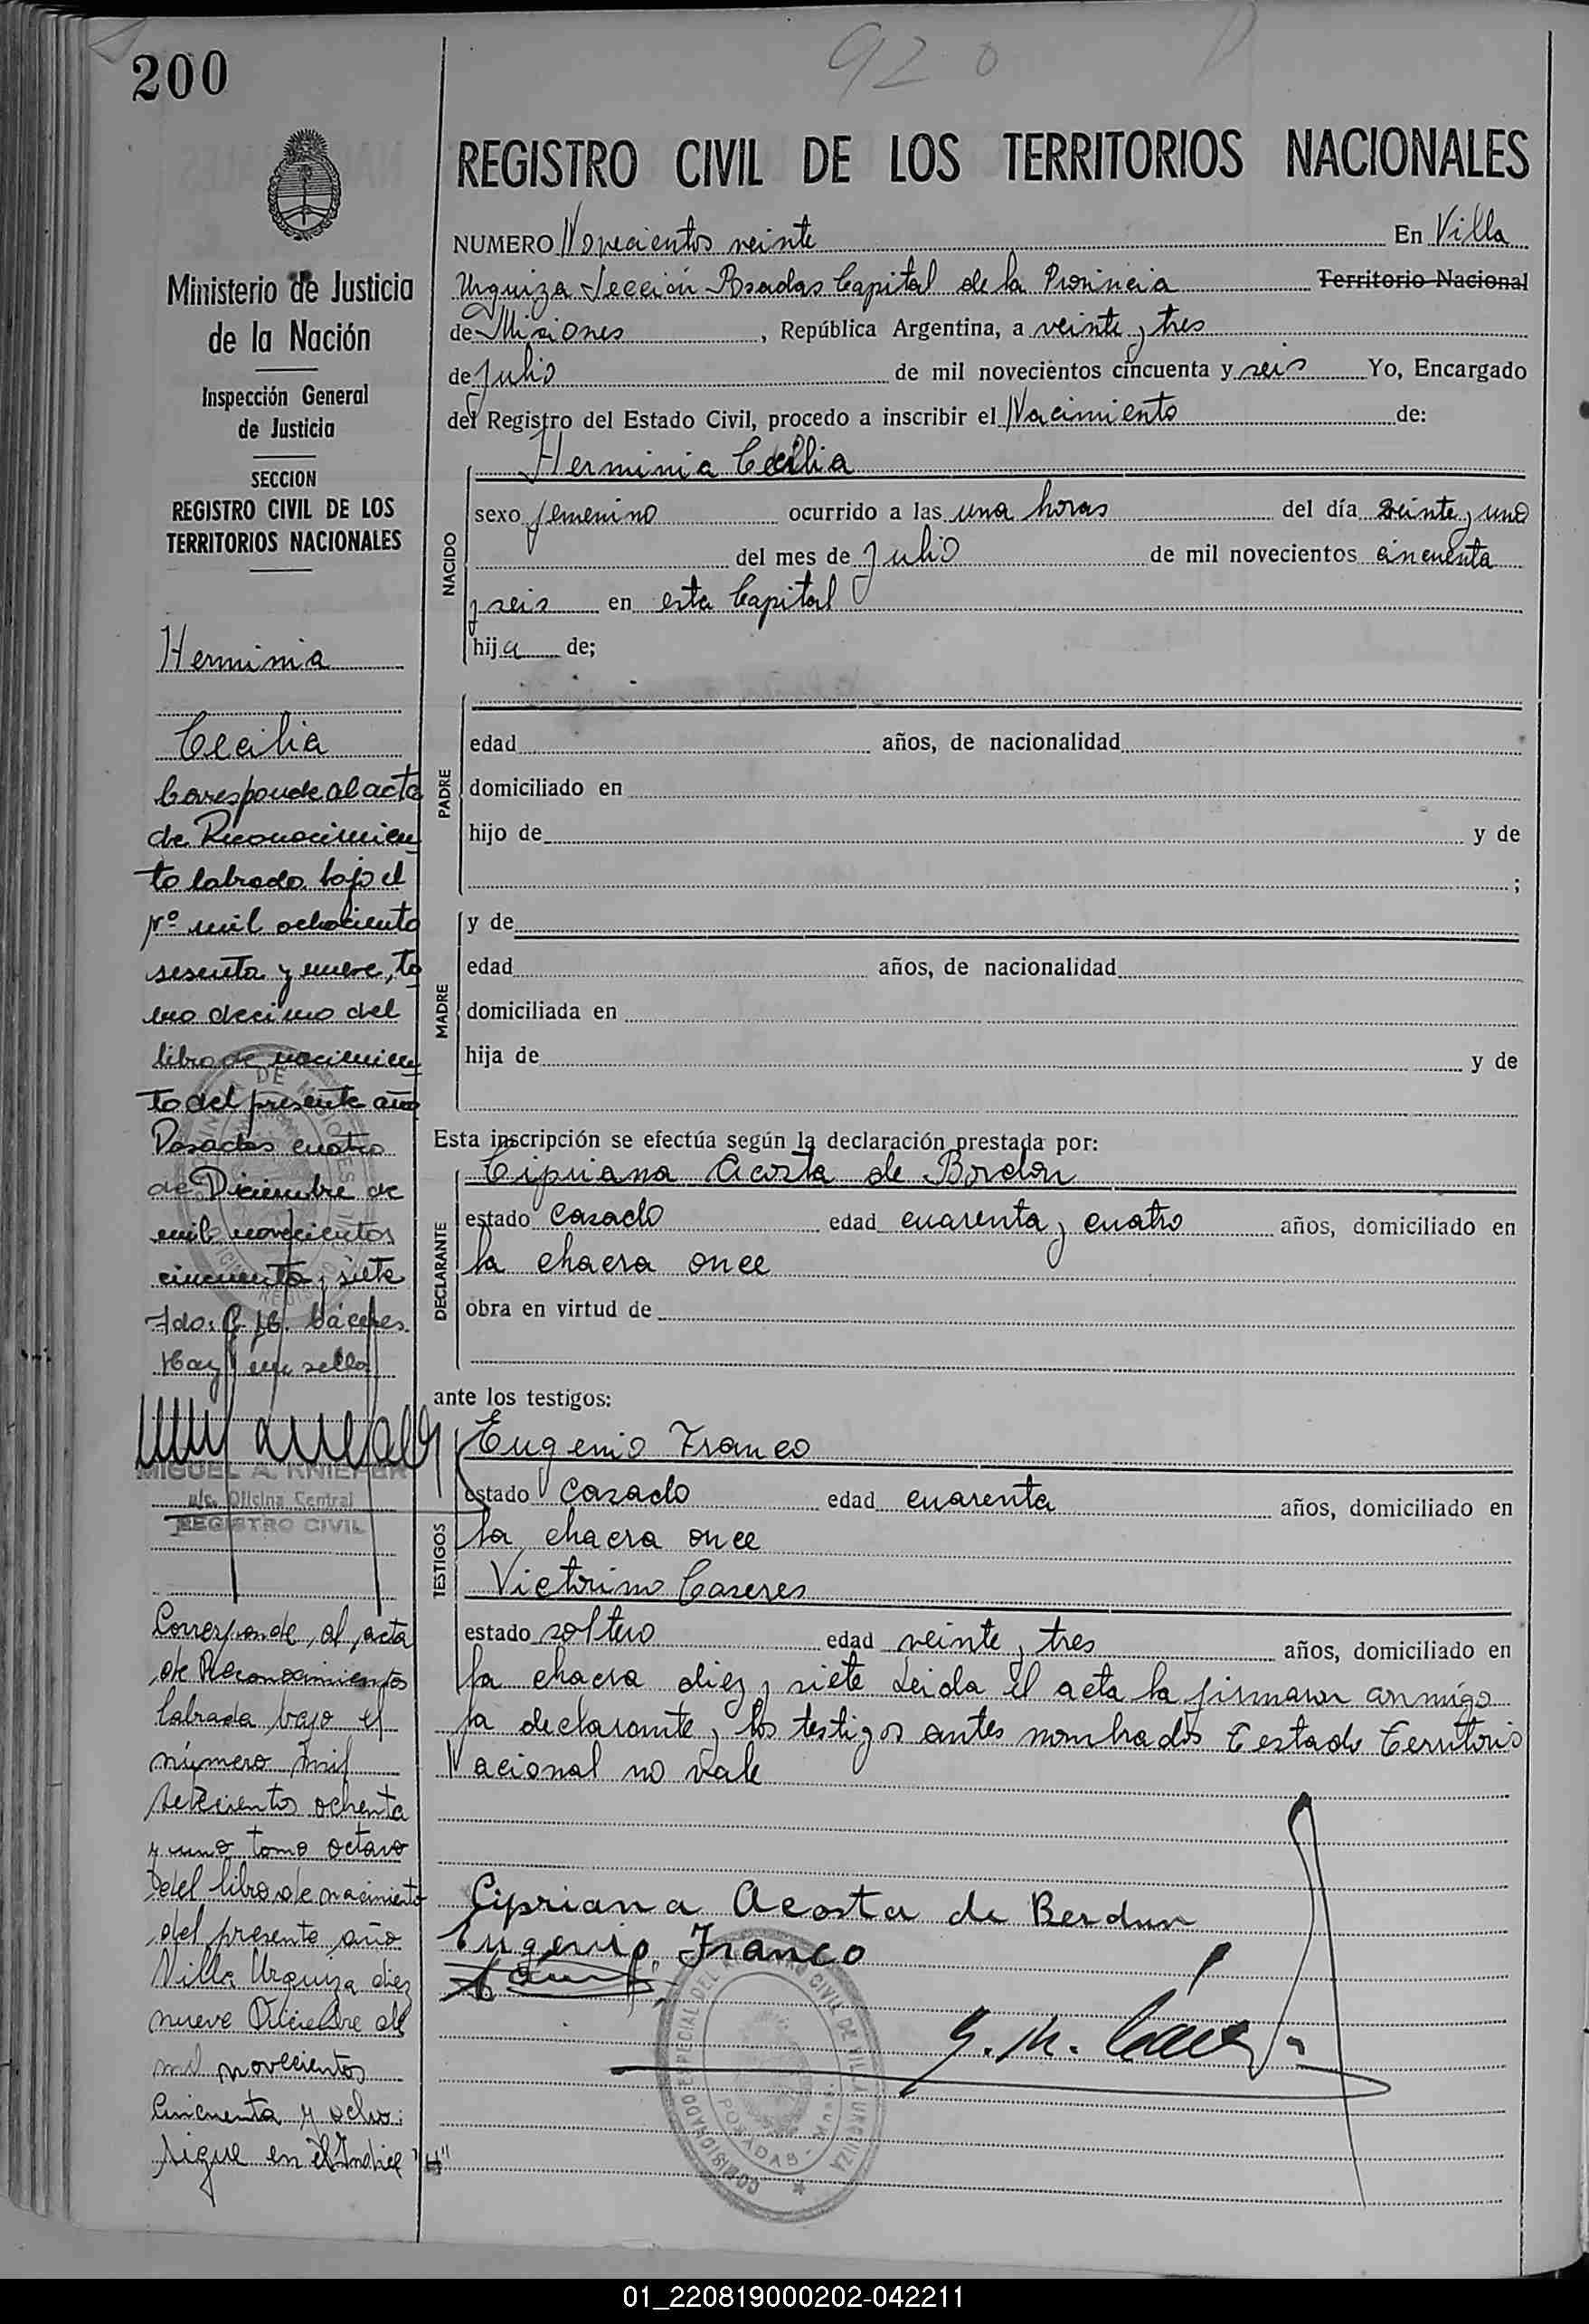 920
200
REGISTRO CIVIL DE LOS TERRITORIOS NACIONALES
Ministerio de Justicia
de la Nación
Inspección General
de Justicia
SECCION
REGISTRO CIVIL DE LOS
TERRITORIOS NACIONALES
Herminia
Cecilia
Corresponde al acta
de Reconocimien
to labrado bajo el
Nº mil ochociento
sesenta y nueve, to
mo decimo del
libro de nacimien
to del presente año
Posadas cuatro
de Diciembre de
mil novecientos
cincuenta y siete
Fdo. G. M. Cáceres.
Hay un sello
MIGUEL A. KNIEPER
a/c. Oficina Central
REGISTRO CIVIL
Corresponde al acta
de Reconocimiento
labrada bajo el
número mil
setecientos ochenta
y uno tomo octavo
del libro de nacimiento
del presente año
Villa Urquiza diez
nueve Diciembre de
mil novecientos
cincuenta y ocho.
Sigue en el Indice "H"
NUMERO Novecientos veinte En Villa
Urquiza Sección Posadas Capital de la Provincia Territorio Nacional
de Misiones, República Argentina, a veinte y tres
de Julio de mil novecientos cincuenta y seis Yo, Encargado
del Registro del Estado Civil, procedo a inscribir el Nacimiento de:
NACIDO
Herminia Cecilia
sexo femenino ocurrido a las una horas del día veinte y uno
del mes de Julio de mil novecientos cincuenta
y seis en esta Capital
hija de;
PADRE
edad años, de nacionalidad
domiciliado en
hijo de y de
;
MADRE
y de
edad años, de nacionalidad
domiciliada en
hija de y de
Esta inscripción se efectúa según la declaración prestada por:
DECLARANTE
Cipriana Acosta de Bordon
estado casado edad cuarenta y cuatro años, domiciliado en
la chacra once
obra en virtud de
ante los testigos:
TESTIGOS
Eugenio Franco
estado casado edad cuarenta años, domiciliado en
la chacra once
Victorino Caseres
estado soltero edad veinte y tres años, domiciliado en
la chacra diez y siete Leida el acta la firmaron conmigo
la declarante y los testigos antes nombrados Testado Territorio
Nacional no vale
Cipriana Acosta de Berdun
Eugenio Franco
G. M. Cáceres
COMISIONADO ESPECIAL DEL REGISTRO CIVIL DE VILLA URQUIZA
POSADAS - Mnes.
01_220819000202-042211